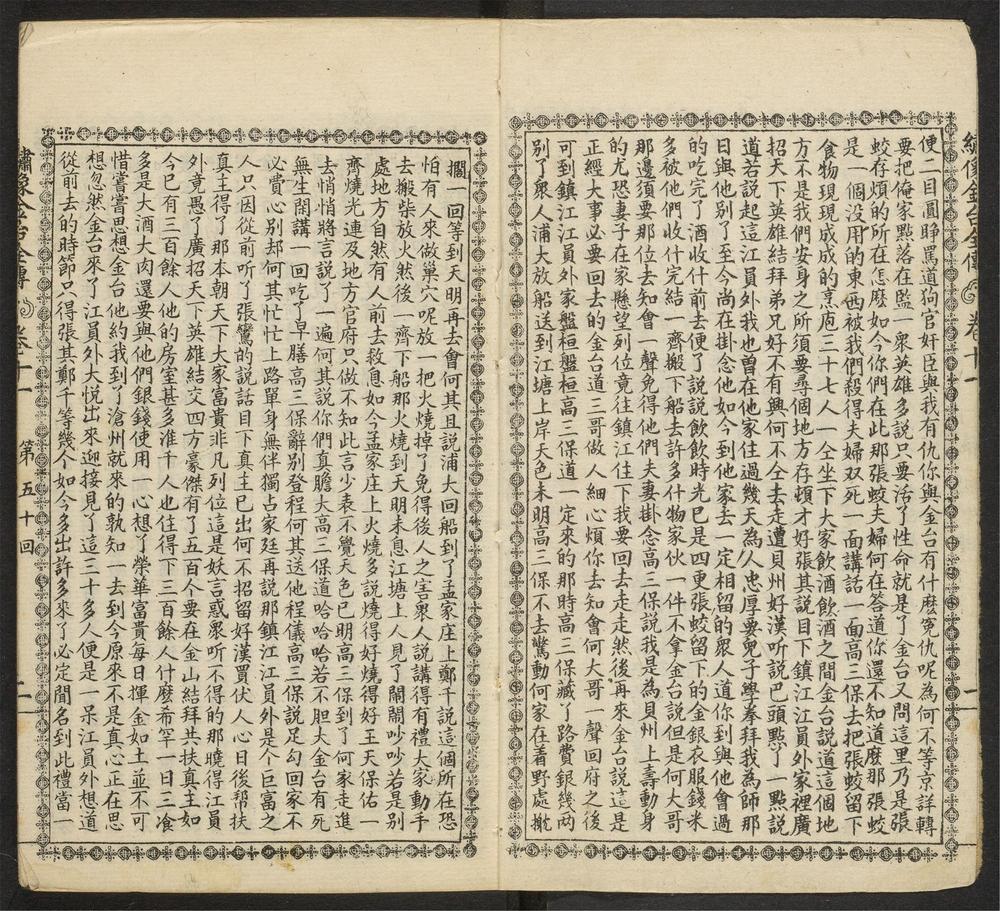 繡像金台全傳 卷十一 二
便二目圓睜罵道狗官奸臣與我有仇你與金台有什麼冤仇呢為何不等京詳轉
要把俺家㸃落在監一眾英雄多説只要活了性命就是了金台又問這里乃是張
蛟存頓的所在怎麼如今你們在此那張蛟夫婦何在答道你還不知道麼那張蛟
是一個没用的東西被我們殺得夫婦双死一面講話一面高三保去把張蛟留下
食物現現成成的烹庖三十七人一仝坐下大家飲酒飲酒之間金台説道這個地
方不是我們安身之所須要尋個地方存頓才好張其説目下鎮江江員外家裡廣
招天下英雄結拜弟兄好不有興何不仝去走遭貝州好漢听説巴頭㸃了一㸃説
道若説起這江員外我也曾在他家住過幾天為人忠厚要兒子學拳拜我為師那
日與他别了至今尚在掛念他如今到他家去一定相留的眾人道你到與他會過
的吃完了酒收什前去便了説説飲飲時光巳是四更張蛟留下的金銀衣服錢米
多被他們收什完結一齊搬下船去許多什物家伙一件不拿金台説但是何大哥
那邊須要那位去知會一聲免得他們夫妻掛念高三保説我是為貝州上壽動身
的尤恐妻子在家懸望列位竟往鎮江住下我要回去走走然後再來金台説這是
正經大事必要回去的金台道三哥做人細心煩你去知會何大哥一聲回府之後
可到鎮江江員外家盤桓盤桓高三保道一定來的那時高三保藏了路費銀幾两
别了眾人浦大放船送到江塘上岸天色未明高三保不去驚動何家在着野處躭
擱一回等到天明再去會何其且説浦大回船到了孟家庄上鄭千説這個所在恐
怕有人來做巢穴呢放一把火燒掉了免得後人之害眾人説講得有禮大家動手
去搬柴放火然後一齊下船那火燒到天明未息江塘上人見了鬧鬧吵吵若是别
處地方自然有人前去救息如今孟家庄上火燒多説燒得好燒得好王天保佑一
齊燒光連及地方官府只做不知此言少表不覺天色已明高三保到了何家走進
去悄悄將言説了一遍何其説你們真膽大高三保道哈哈哈若不胆大金台有死
無生閑講一回吃了早膳高三保辭别登程何其送他程儀高三保説足勾回家不
必費心别却何其忙忙上路單身無伴獨占家廷再説那鎮江江員外是个巨富之
人只因從前听了張鸞的説話目下真主已出何不招留好漢買伏人心日後帮扶
真主得了那本朝天下大家富貴非凡列位這是妖言惑眾听不得的那曉得江員
外竟愚了廣招天下英雄結交四方豪傑有了五百个要在金山結拜共扶真主如
今巳有三百餘人他的房室甚多准千人也住得下三百餘人什麼希罕一日三飡
多是大酒大肉還要與他們銀錢使用一心想了榮華富貴每日揮金如土並不可
惜嘗嘗思想金台他約我到了滄州就來的孰知一去到今原來不是真心正在思
想忽然金台來了江員外大悦出來迎接見了這三十多人便是一呆江員外想道
從前去的時節只得張其鄭千等幾个如今多出許多來了必定聞名到此禮當一
繡像金台全傳 卷十一 第五十回 二